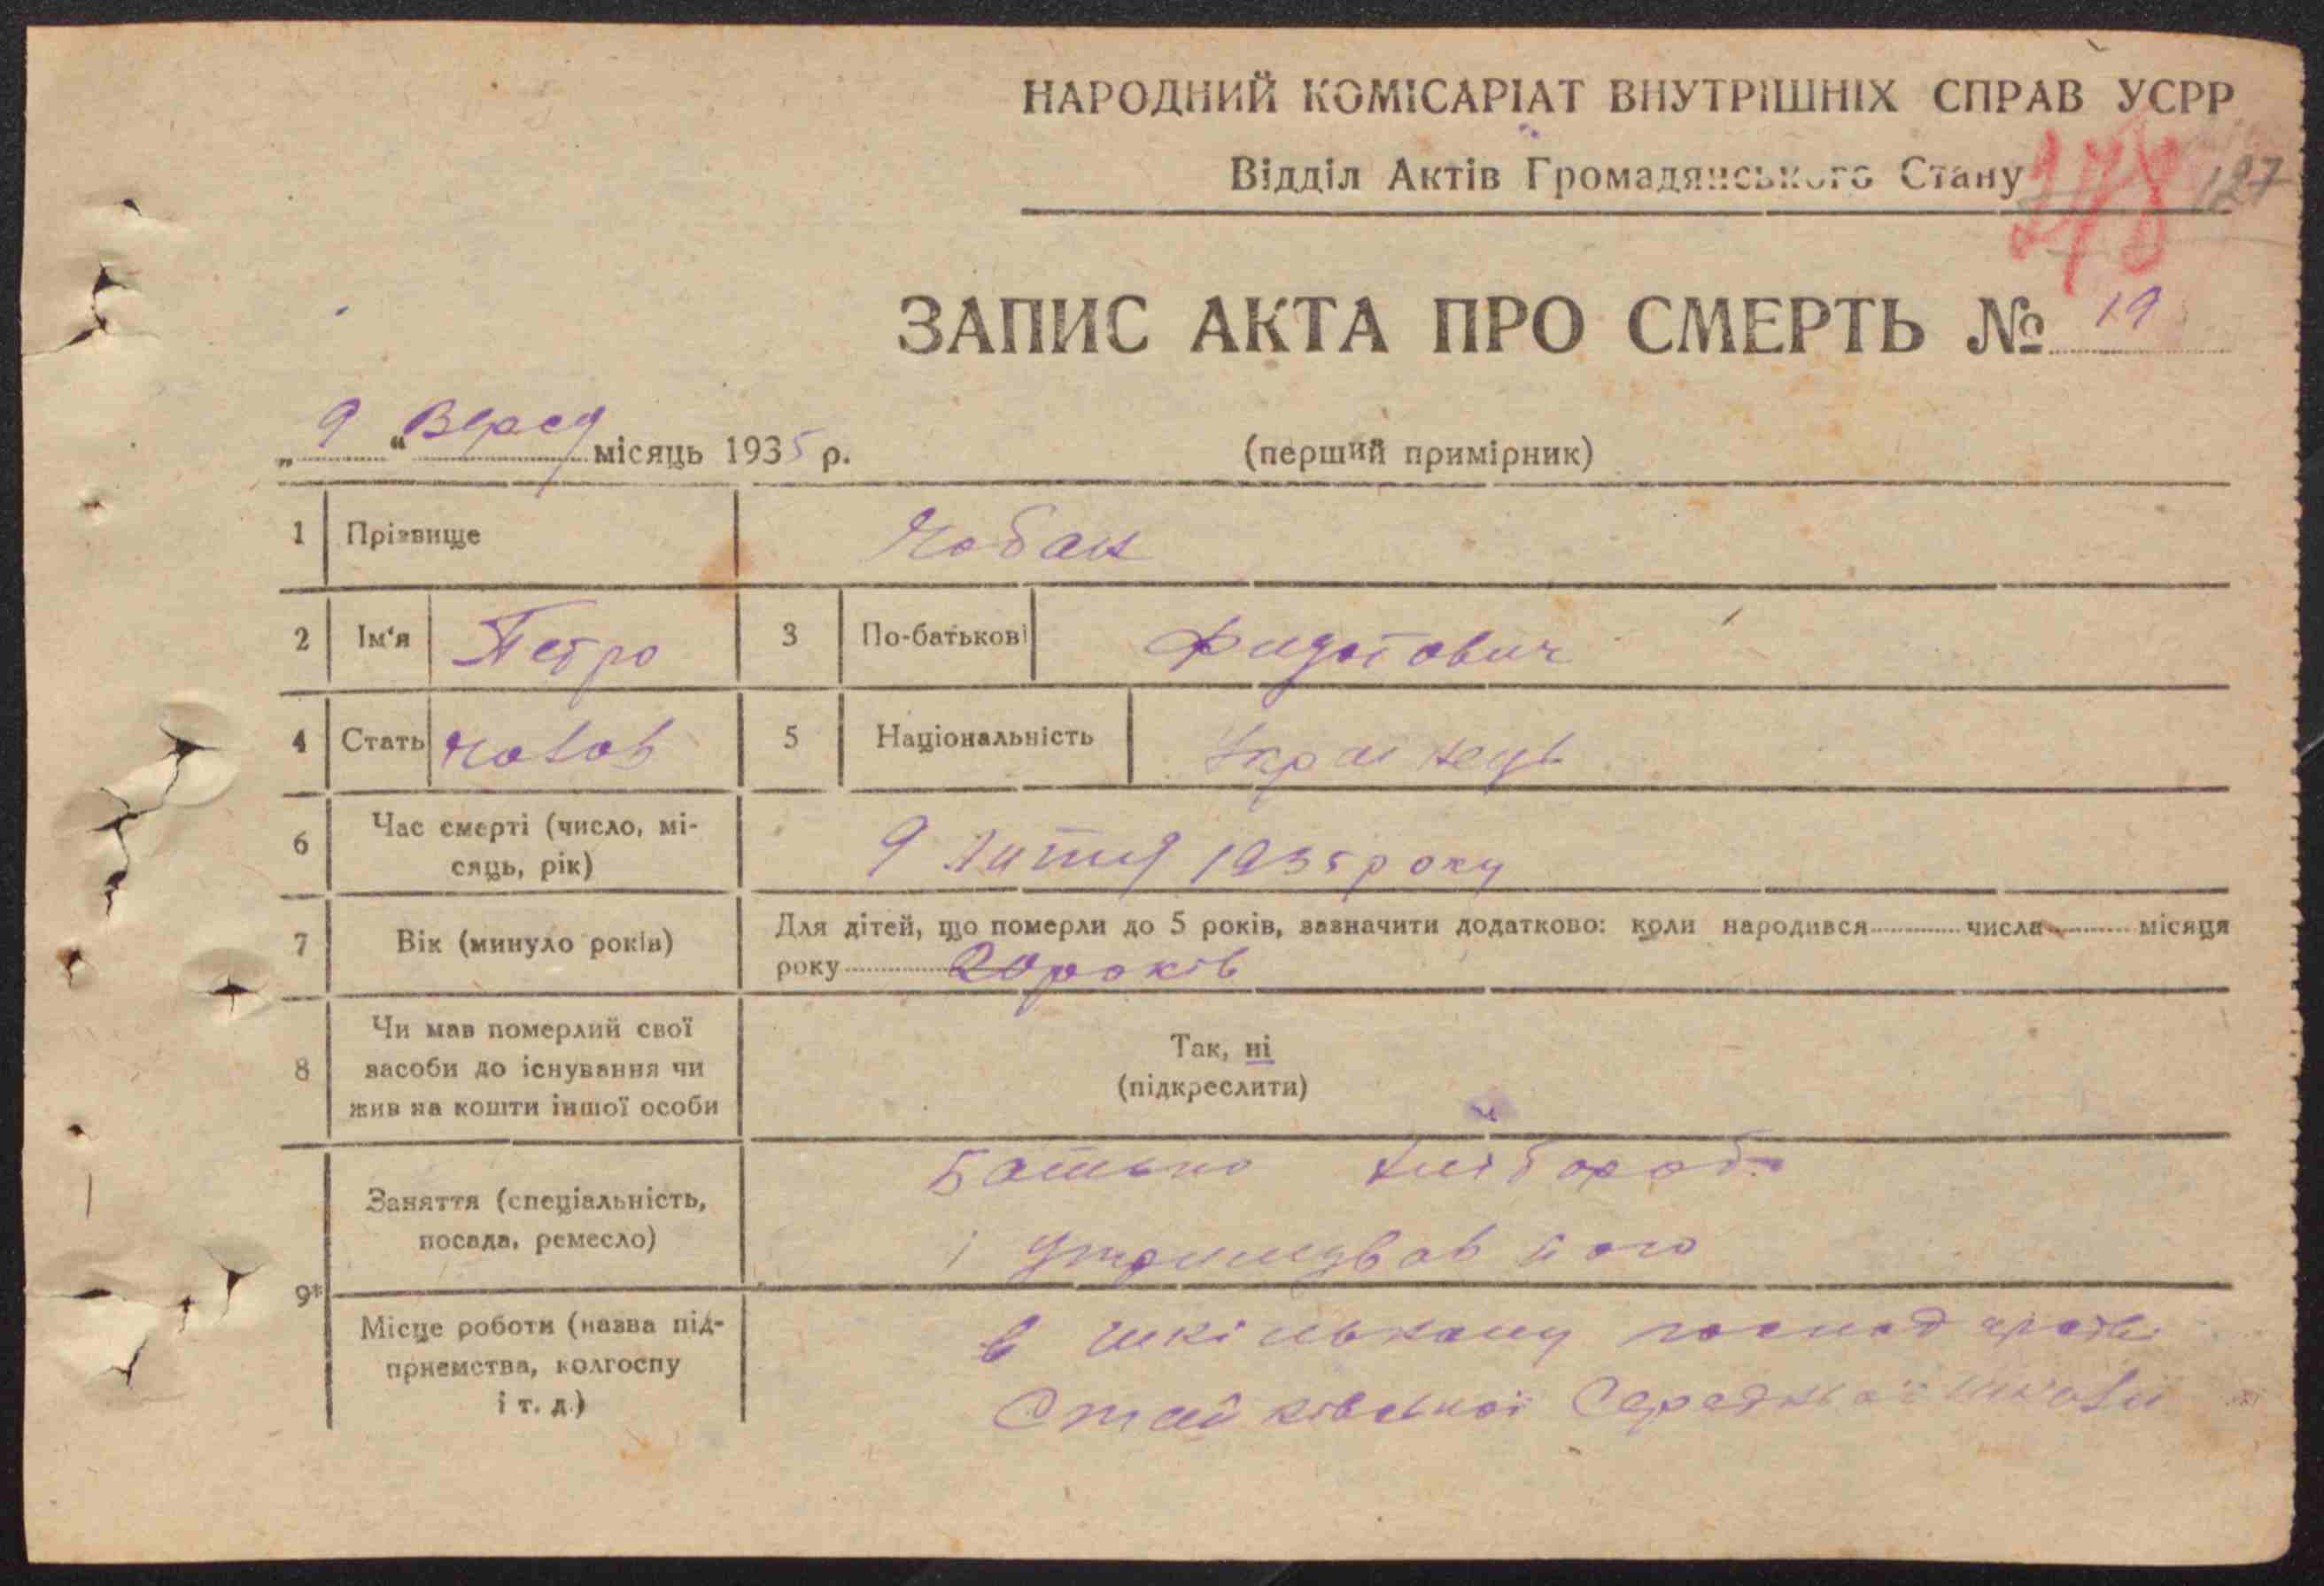 НАРОДНИЙ КОМІСАРІАТ ВНУТРІШНІХ СПРАВ УСРР
Відділ Актів Громадянського Стану
178 127
ЗАПИС АКТА ПРО СМЕРТЬ № 19
„ 9 “ Верес місяць 1935 р. (перший примірник)
1 Прізвище Чобан
2 Ім'я Петро 3 По-батькові Фидотович
4 Стать чолов 5 Національність Українець
6 Час смерті (число, мі-
сяць, рік) 9 1935 року
7 Вік (минуло років) Для дітей, що померли до 5 років, зазначити додатково: коли народився числа місяця
року 20 років
8 Чи мав померлий свої
засоби до існування чи
жив на кошти іншої особи
Так, ні
(підкреслити)
9* Заняття (спеціальність,
посада, ремесло)
Батько
і утримував його
Місце роботи (назва під-
приемства, колгоспу
і т. д.)
в шкільному господарстві
Стайківської Середньої школи